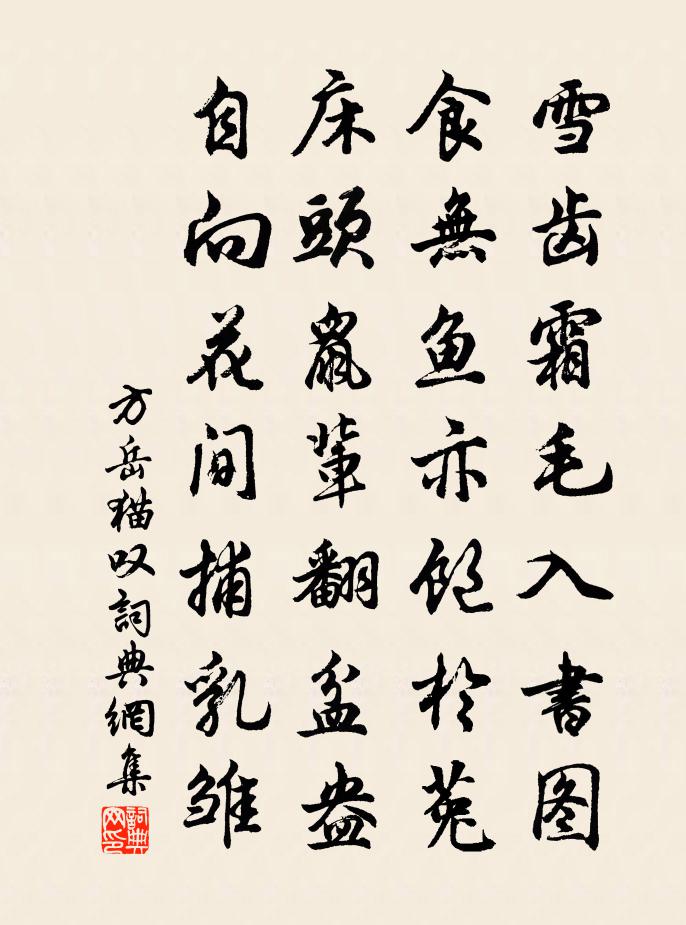 雪齿霜毛入書图
食無鱼亦饱於菟
床頭鼠輩翻盆盎
自向花间捕乳雏
方岳猫叹詞典網集
詞典网印